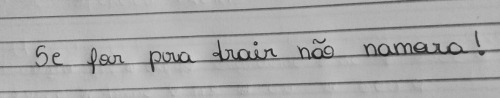 Se for pra trair não namora!